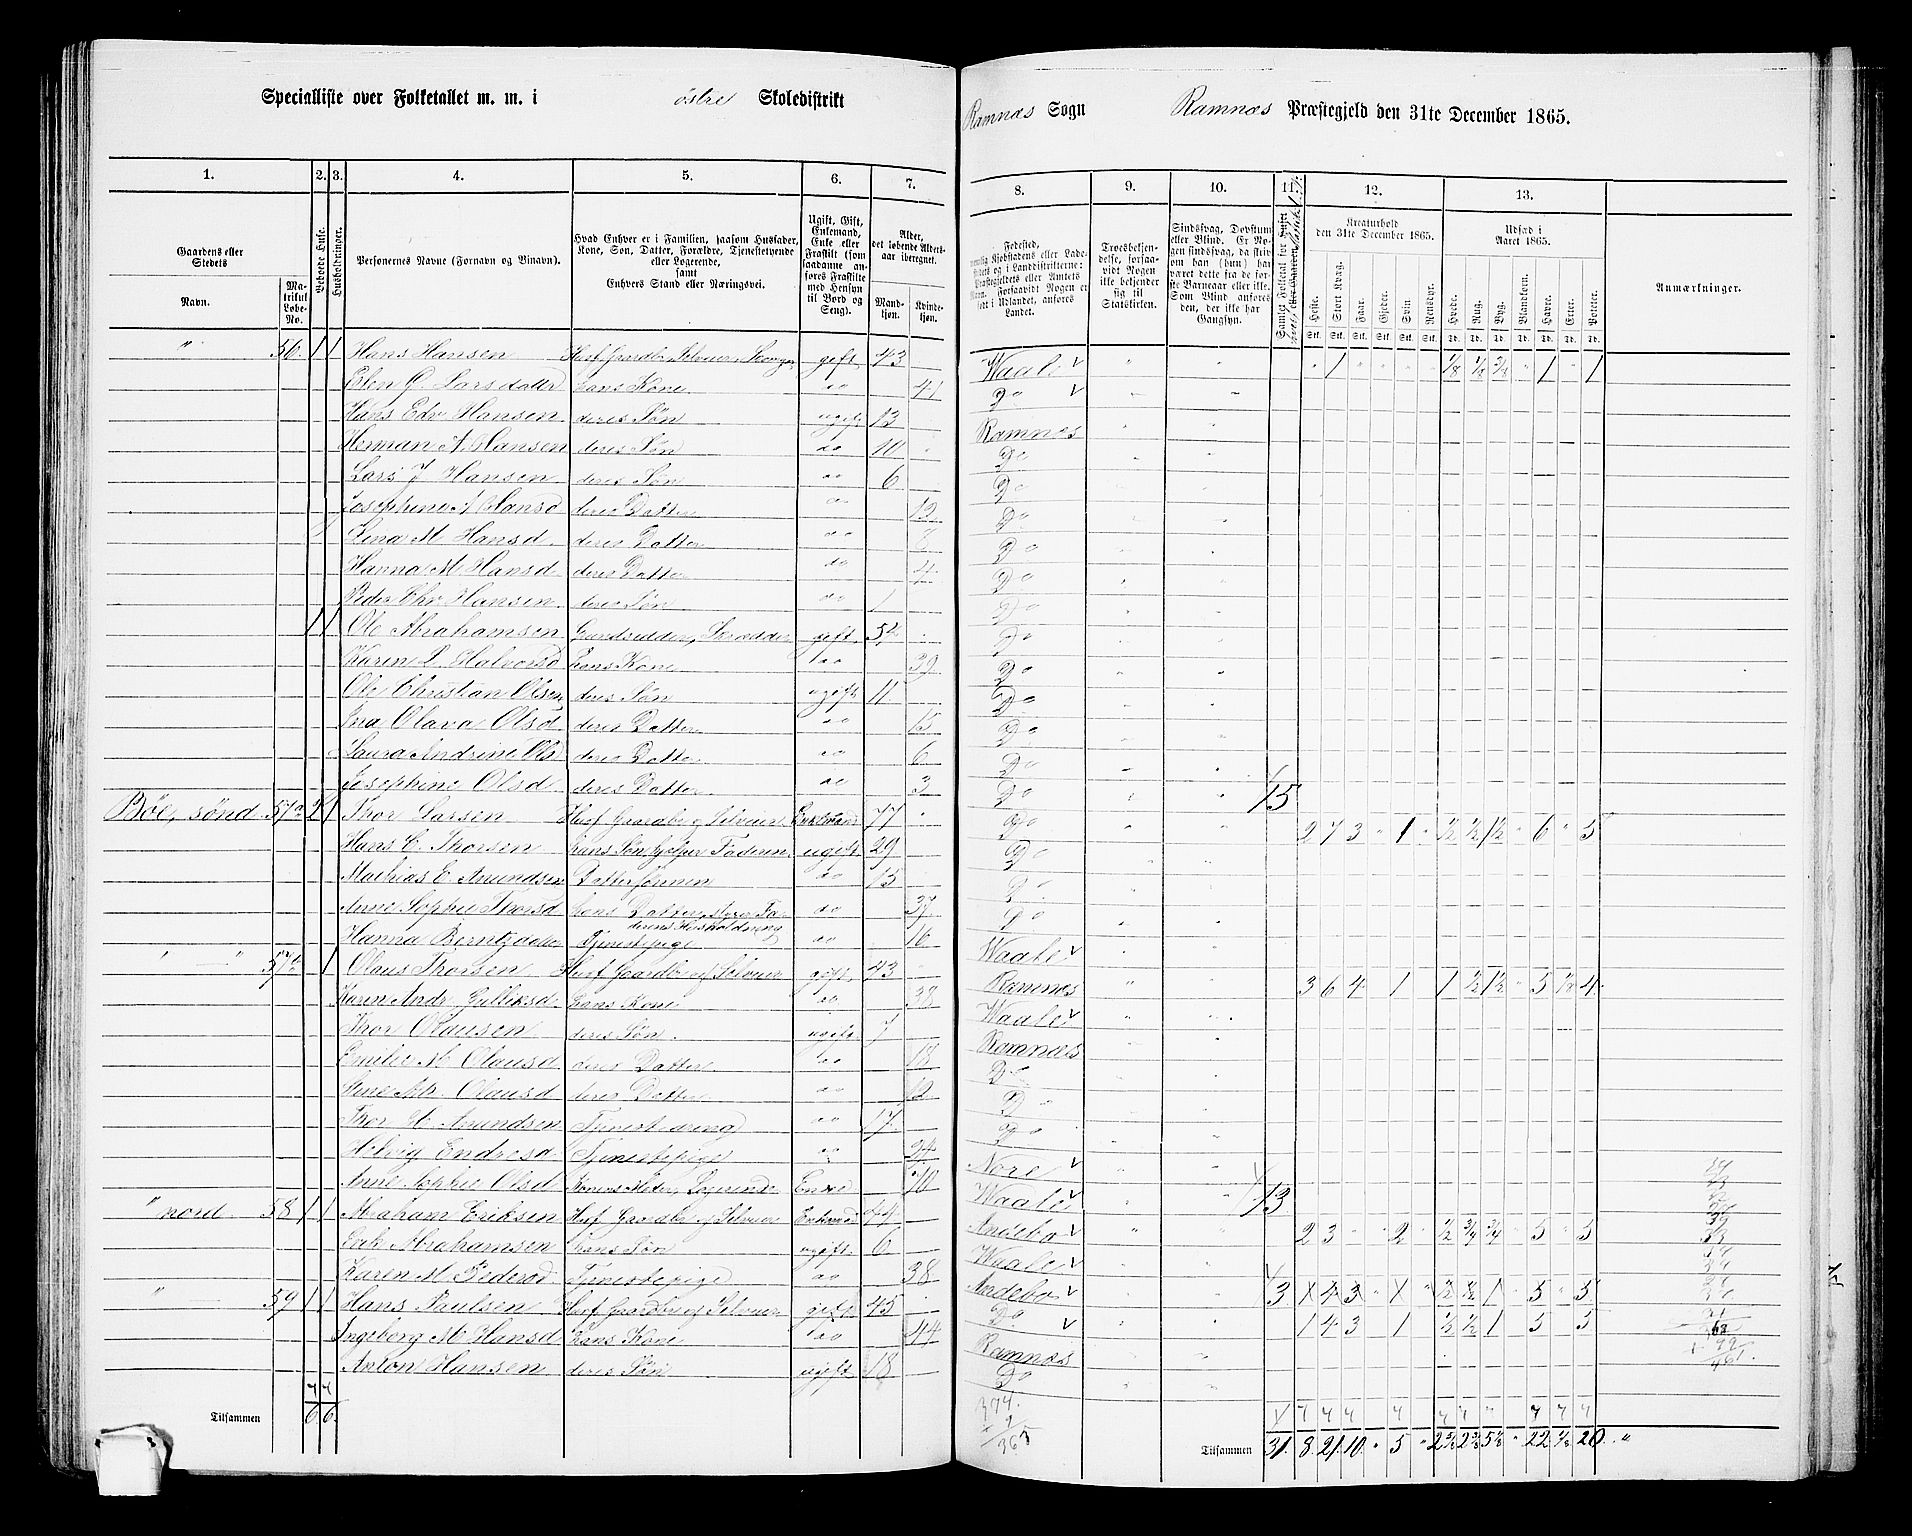 Specialliste over Folketallet m. m. i østre Skoledistrikt
Ramnæs Sogn Ramnæs Præstegjeld den 31te December 1865.
1. 2. 3. 4. 5. 6. 7.
8. 9. 10. 11. 12. 13.
Gaardens eller Stedets
Navn.
Matrikul Løbe-No.
Beboede Huse.
Husholdninger.
Personernes Navne (Fornavn og Tilnavn).
Hvad Enhver er i Familien, saasom Husfader, Kone, Søn, Datter, Forældre, Tjenestetyende eller Logerende, samt Enhvers Stand eller Næringsvei.
Ugift, Gift, Enkemand, Enke eller Fraskilt (som saadanne anføres Fraskilte med Hensyn til Bord og Seng).
Alder, det løbende Aldersaar iberegnet.
Mandkjøn.
Kvindekjøn.
Fødested,
Troesbekjendelse, forsaavidt Nogen ikke bekjender sig til Statskirken.
Sindssvag, Døvstum eller Blind. Er Nogen sindssvag, da skriv om han (hun) har været dette fra de første Barneaar eller ikke. Som Blind anføres den, der ikke har Gangsyn.
Kreaturhold den 31te December 1865.
Heste. Stort Kvæg. Faar. Gjeder. Svin Rensdyr.
Udsæd i Aaret 1865.
Hvede. Rug. Byg. Blandkorn. Havre. Erter. Poteter.
Anmærkninger.
" 56 1 1 Hans Hansen gift 43 Waale 1
Elen G. Larsdatter hans Kone do 41 Do
Hans Edv. Hansen deres Søn ugift 13 Ramnæs
Herman A. Hansen deres Søn do 10 Do
Lars J Hansen deres Søn do 6 Do
Josephine A Hansd deres Datter do 12 Do
Lina M. Hansd. deres Datter do Do
Hanna M Hansd deres Datter do 4 Do
Peder Chr Hansen deres Søn do 1 Do
1 1 Ole Abrahamsen Skrædder gift 54 Do
Karen L. Halvorsd hans Kone do 39 Do
Ole Christian Olsen deres Søn ugift 11 Do
Ina Olava Olsd deres Datter do 15 Do
Laura Andrine Ols deres Datter do 6 Do
Josephine Olsd. deres Datter do 3 Do 15
Böe, sönd 57a 2 1 Thor Larsen Husf Gaardbr og Selveier Enkemand 77 Do 2 7 3 " 1 " ½ ½ 1½ " 6 " 5
Hans C. Thorsen hans Søn hjelper Faderen ugift 29 Do
Mathias E. Amundsen Dattersønnen do 15 Do
Anne Sophie Thorsd hans Datter, styrer Faderens Husholdning do 37 Do
Hanna Berntzdatter Tjenestepige do 16 Waale
" " 57b 1 Olaus Thorsen Husf Gaardbr og Selveier gift 43 Ramnæs 3 6 4 1 1 ½ 1½ 5 4
Karen Andr. Gulliksd hans Kone do 38 Waale
Thor Olausen deres Søn. ugift 7 Ramnæs
Emilie M. Olausd deres Datter do 18 Do
Olausd deres Datter do 12 Do
Thor H. Amundsen Tjenestedreng do 17 Do
Helvig Endresd Tjenestepige do 24 Nore
Anne Sophie Olsd Konens Moder, Logerende Enke 70 Waale 13
" nord 58 1 1 Abraham Eriksen Husf. Gaardbr og Selveier Enkemd 44 Andebo 2 3 " " 2 " ½ ¾ ¾ " 5 " 5
Erik Abrahamsen hans Søn ugift 6 Waale
Karen M. Pedersd. Tjenestepige do 38 Andebo 3
" 59 1 1 Hans Paulsen Husf Gaardbr og Selveier gift 45 Do 1 4 3 1 ½ ½ 1 5 5
Ingeborg M. Hansd hans Kone do 44 Ramnæs
Anton Hansen deres Søn ugift 18 Do
Tilsammen 6 6
374.
363
Tilsammen 31. 8. 21. 10. " 5 " 22 20 "
461.